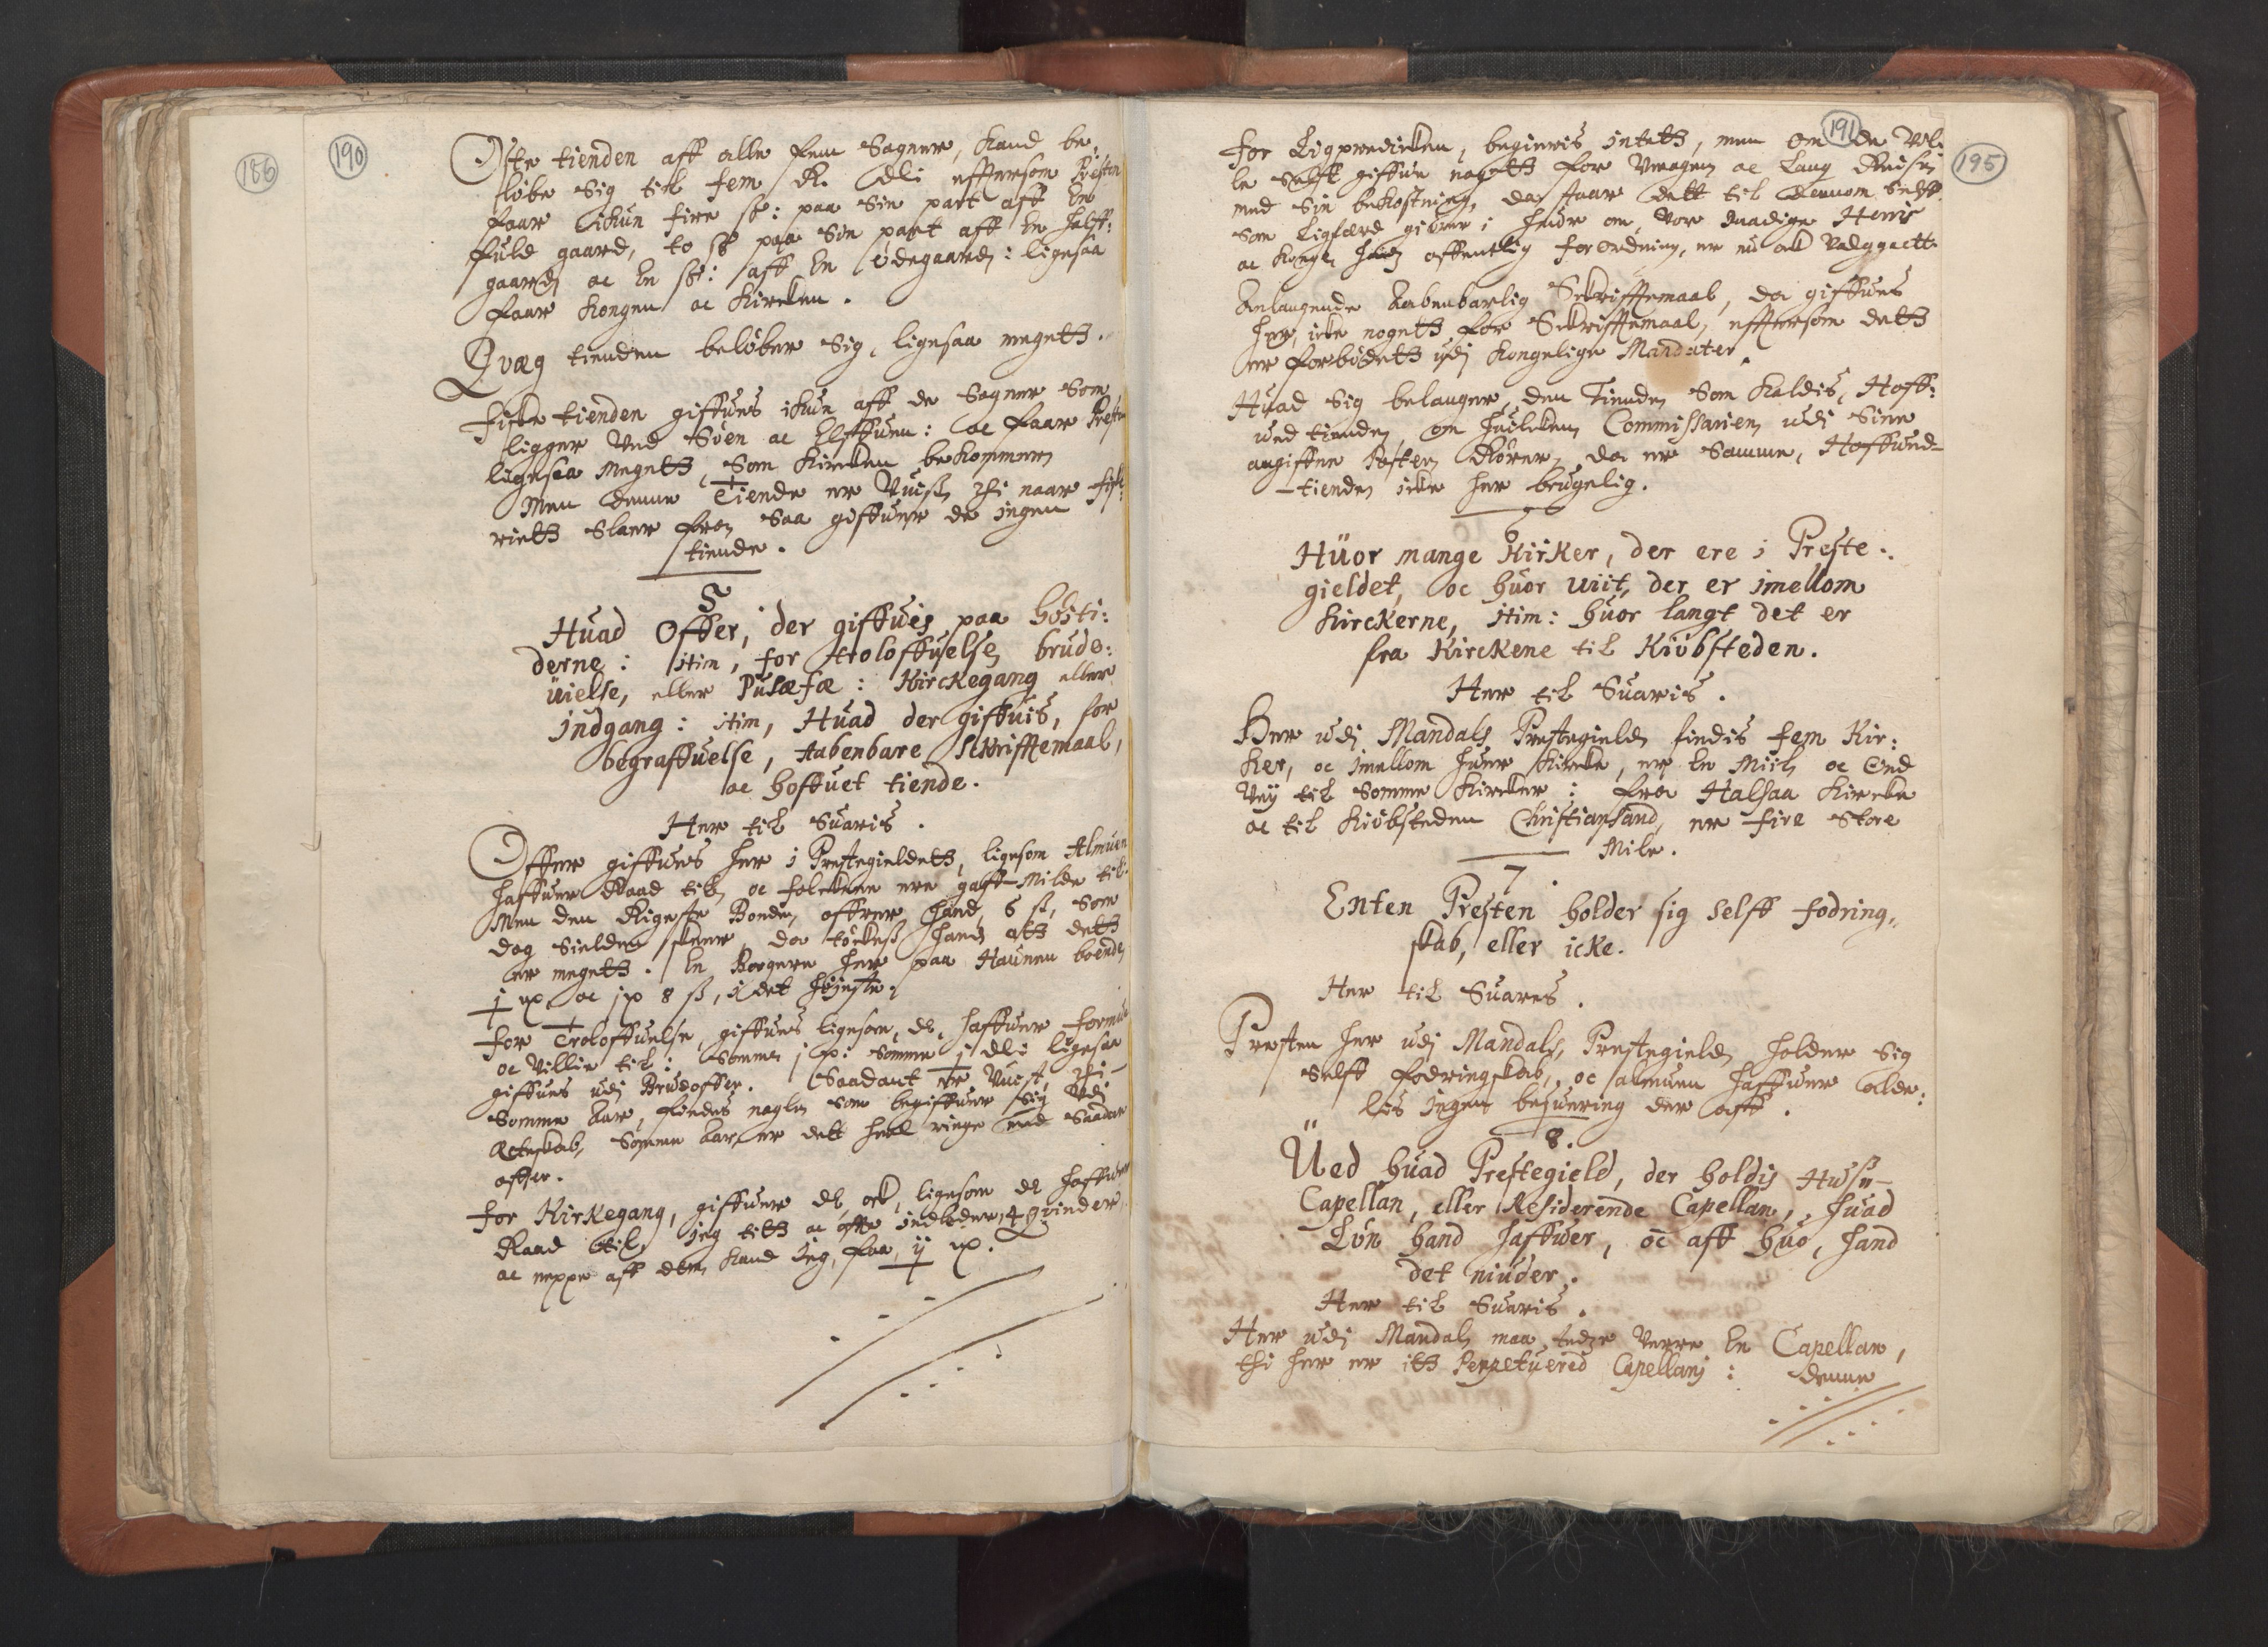 186
190
Oste tienden aff alle fem Sogner, kand be¬
løbe Sig till fem R. dlr: effttersom Presten
faar ikun fire sk: paa Sin part aff En
fuld gaard, to sk paa Sin part aff En halff:
gaard oc En sk: aff En ødegaard: ligesaa
faar Kongen oc Kircken.
Qvæg tienden beløber Sig, ligesaa megett.
Fiske tienden giffues ikun aff de Sogner Som
ligger ved Søen oc Elffuen: oc faar Presten
ligesaa megett, Som Kircken bekommer
Men denne Tiende er Vuiss, thi naar fisk:
eriett Slaar fra, Saa giffuer de ingen
tiende.
5
Huad Offer, der giffues paa høiti:
derne: item, for troloffuelse, brude:
uielse, eller Pusæfæ: Kirckegang eller
indgang: item, Huad der giffuis, for
begraffuelse, Aabenbare Skrifftemaal,
oc hoffuet tiende.
Her til Suaris.
Offer giffues her i Prestegieldett, ligesom Almuen
haffuer Raad till, oc folckene ere gaff-Milde till.
Men den Rigeste Bonde, offrer hand, 6 sk, Som
dog Sielden skeer, da töckess hand att dett
er megett. En Borgere her paa Haunen boende
j ɱ oc jɱ 8 ß, i det høieste.
For Troloffuelse, giffues ligesom, de, haffuer formue
oc Villie till: Somme j ɱ: Somme j dlr: ligesaa
giffues udi Brudoffer. Saadant er Vuist, thi
Somme Aar, findes nogle Som begiffuer Sig Udi
Ecteskab, Somme Aar, er dett heel ringe med Saadan
offer.
For Kirkegang, giffuer de, ock, ligesom de haffuer
Raad till, Jeg titt oc offte indleder, 4 quinder,
oc neppe aff dem kand Jeg, faa, ij ɱ.
191
195
For Ligpredicken, begieris intett, men Om de Vil¬
le Selff giffue nogett for Umagen oc Lang Reisen
med Sin bekostning, da staar dett til dennom Selff
Som Ligfærd giører: huor om, Vor Naadige Herris
oc Kongis hans offentlig forordning, er nu ock Udgganett.
Anlangende Aabenbarlig Skrifftemaal, da giffues
her, icke nogett for Skrifftemaal, efftersom dett
er forbødett udi Kongelige Mandater.
Huad Sig belanger, den Tiende Som kaldis, Hoff:
ued tiende, om huilcken Commissarien udi Sine
angiffne Poster Rörer, da er Samme, Hoffued-
-tiende icke her brugelig.
6
Hüor mange Kirker, der ere i Preste:
gieldet, oc huor uiit, der er imellom
Kirckerne, itim: huor langt det er
fra Kirckene til Kiöbsteden.
Her til Suaris.
Her udi Mandals Prestegield, findis fem Kir:
ker, oc imellom huer Kircke, er En Miil, oc Ond
Vej til Somme Kircker: fra Halsaa Kircke
oc til Kiöbsteden Christiansand, er fire Store
Mile.
7.
Enten Presten holder sig selff fodring,,
skab, eller icke.
Her til Suares.
Presten her udi Mandals, Prestegield, holder Sig
Selff fodringskab, oc almuen haffuer alde:
lis Ingen besuering der aff.
8.
Üed huad Prestegield, der holdis Huse-
Capellan, eller Residerende Capellan, huad
Lön hand haffuer, oc aff huo, hand
det niuder.
Her til Suaris.
Her udi Mandal, maa verre En Capellan,
thi her er itt Perpetuered Capellani: denne